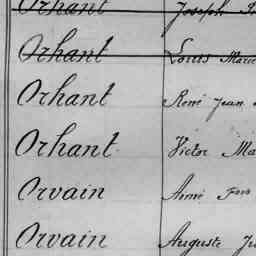 Orhant Joseph
Orhant Louis Marie
Orhant René Jean
Orhant Victor Ma
Orvain Aimé Fois
Orvain Auguste Ju